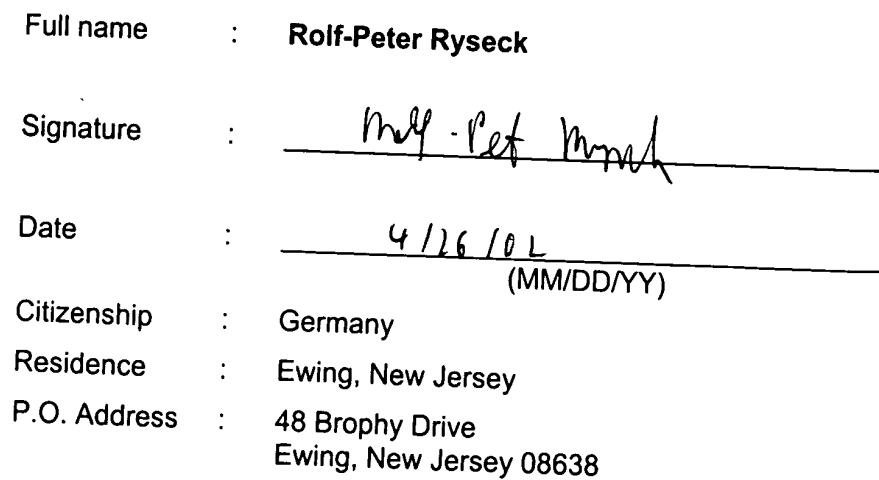 Full name : Rolf-Peter Ryseck
Signature : Rolf-Peter Ryseck
Date : 4/26/02
(MM/DD/YY)
Citizenship : Germany
Residence : Ewing, New Jersey
P.O. Address : 48 Brophy Drive
Ewing, New Jersey 08638